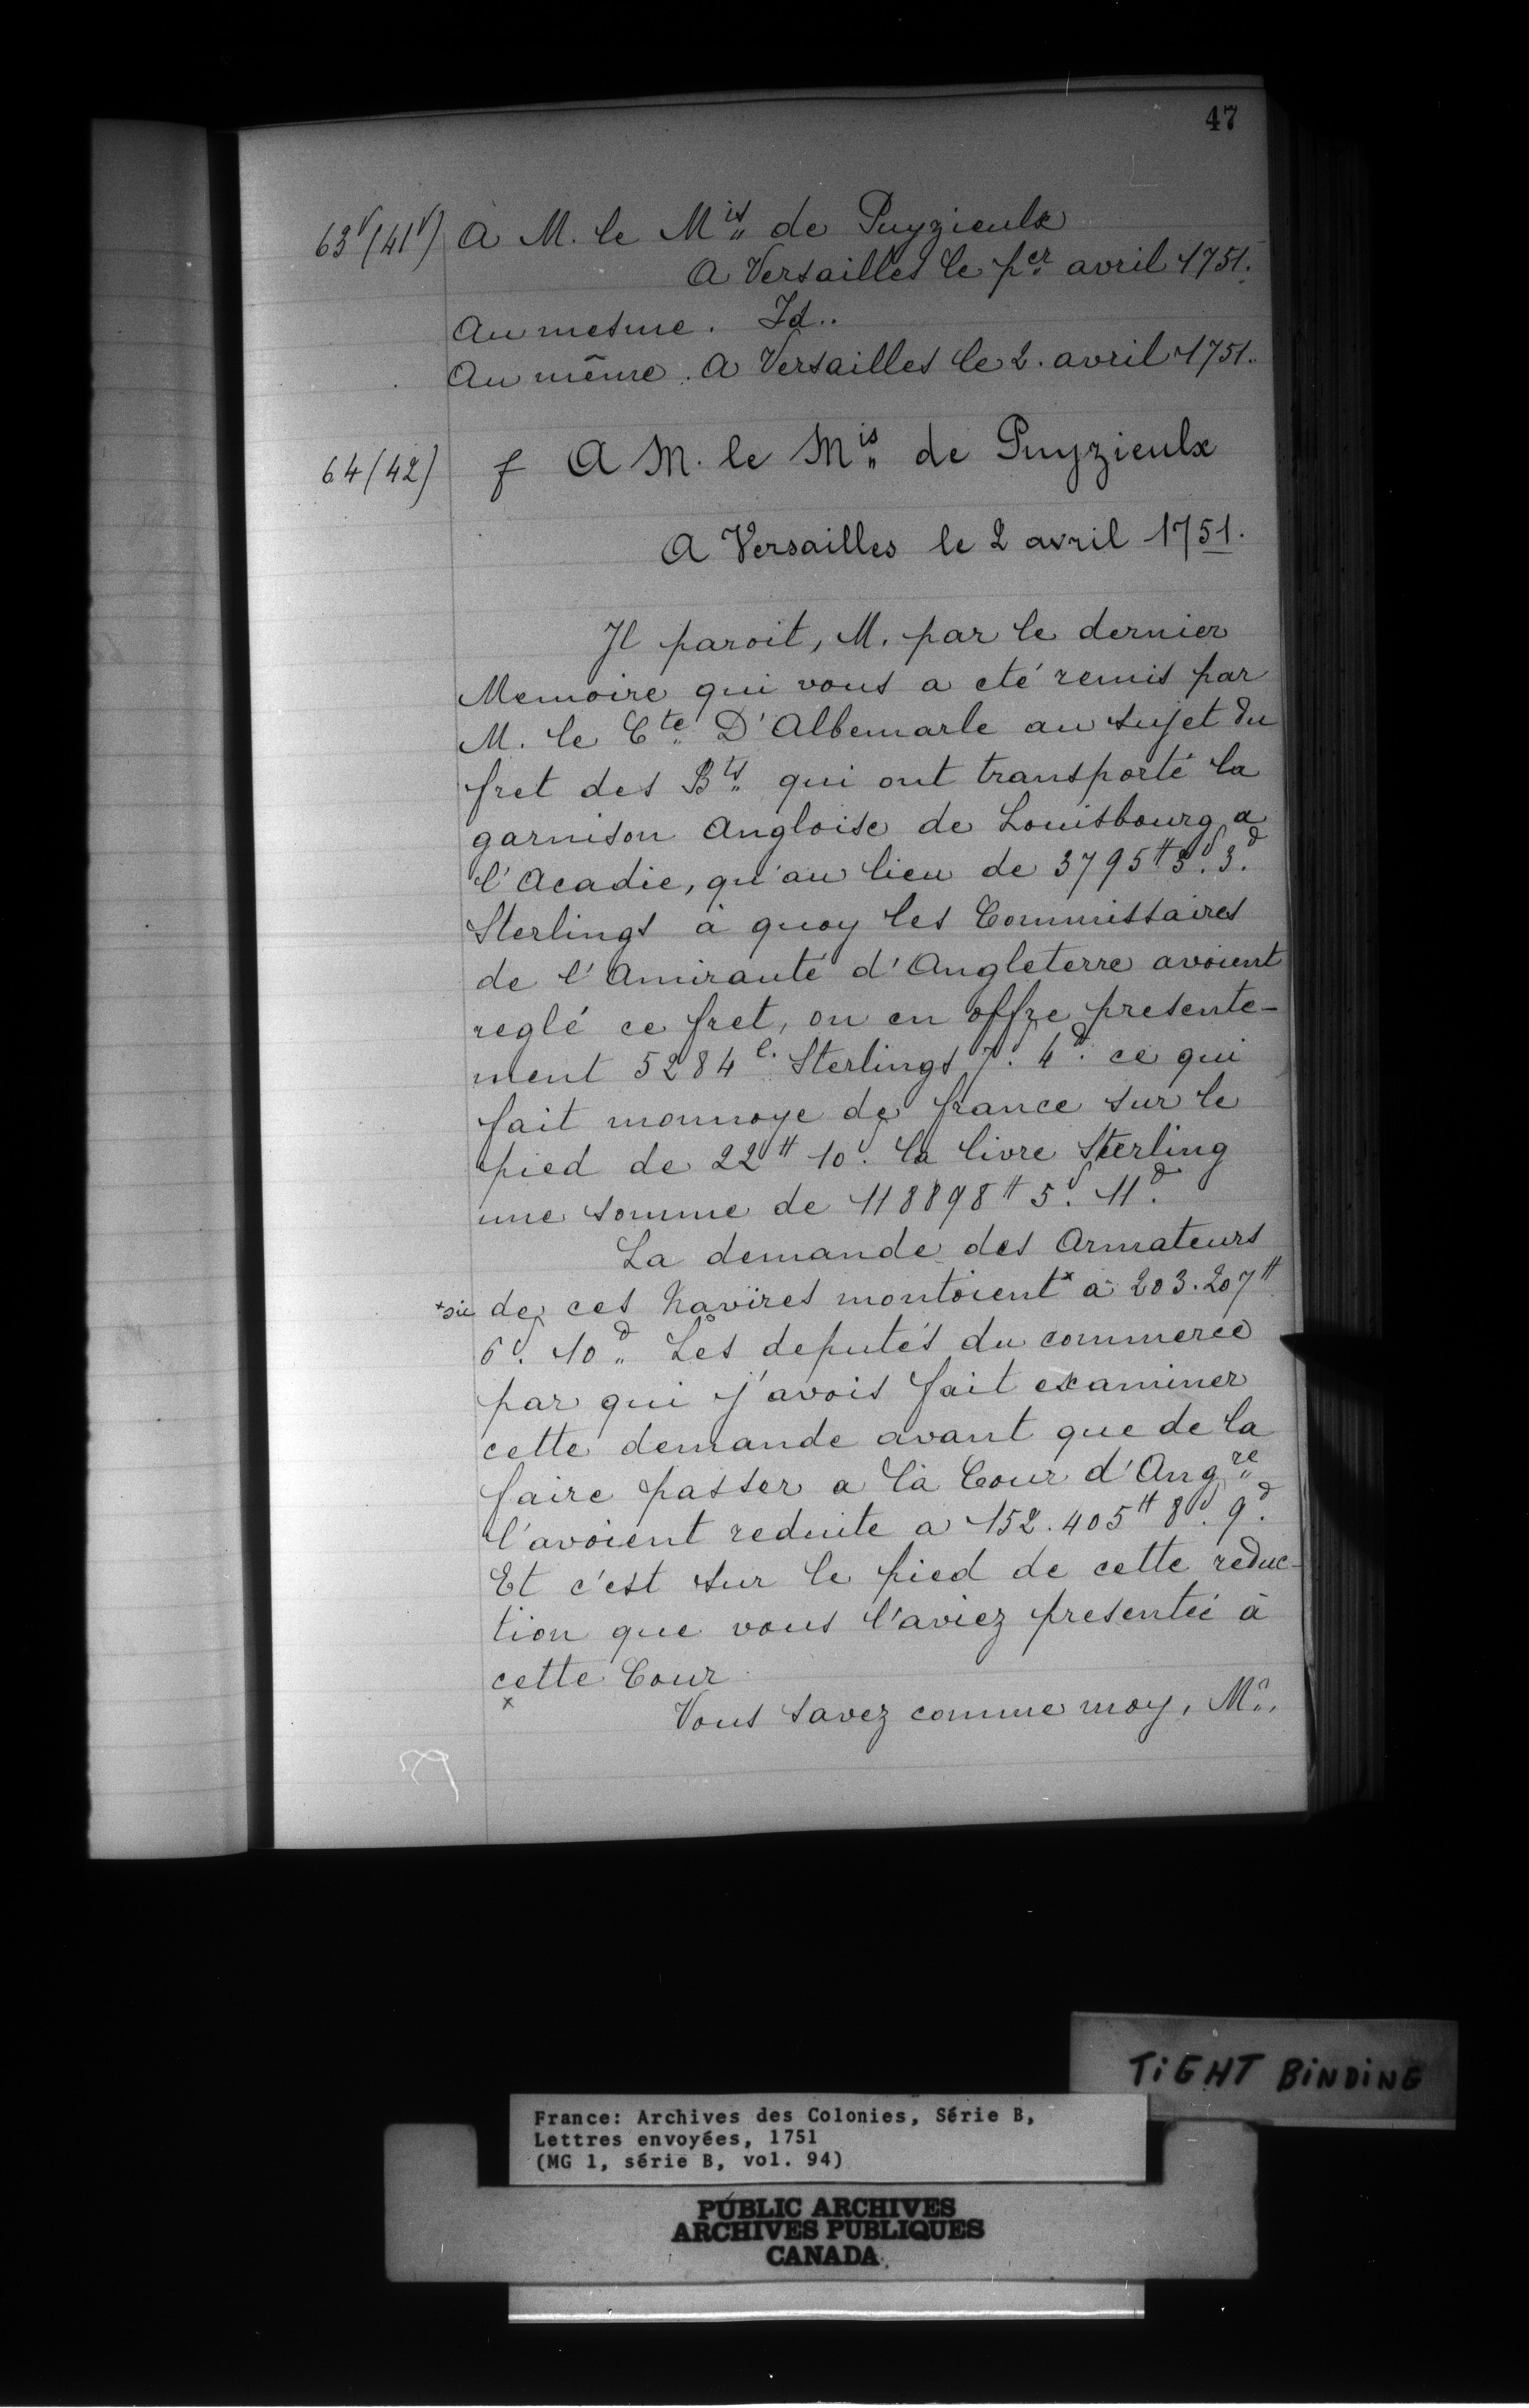 47
63v (41v) A M. le Mis de Puyzieulx
A Versailles le per avril 1751.
Au mesme. Id..
Au même. A Versailles le 2. avril 1751.
64 (42) f A M. le Mis de Puyzieulx
A Versailles le 2 avril 1751.
Il paroit, M. par le dernier
Memoire qui vous a eté remis par
M. le Cte D'Albemarle au sujet du
fret des Bts qui ont transporté la
garnison Angloise de Louisbourg a
l'Acadie, qu'au lieu de 3795# 3s. 3d.
Sterlings à quoy les Commissaires
de l'Amirauté d'Angleterre avoient
reglé ce fret, on en offre presente-
ment 5284 l. Sterlings 7s. 4d. ce qui
fait monnoye de france sur le
pied de 22# 10s. la livre Sterling
une somme de 118898# 5s. 11d.
La demande des Armateurs
*sic de ces Navires montoient* à 203.207#
6s. 10d. Les deputés du commerce
par qui j'avois fait examiner
cette demande avant que de la
faire passer a la Cour d'Angre
l'avoient reduite a 152.405# 8s. 9d.
Et c'est sur le pied de cette reduc-
tion que vous l'aviez presentée à
cette Cour
x
Vous savez comme moy, Mr.,
TIGHT BINDING
France: Archives des Colonies, Série B,
Lettres envoyées, 1751
(MG 1, série B, vol. 94)
PUBLIC ARCHIVES
ARCHIVES PUBLIQUES
CANADA